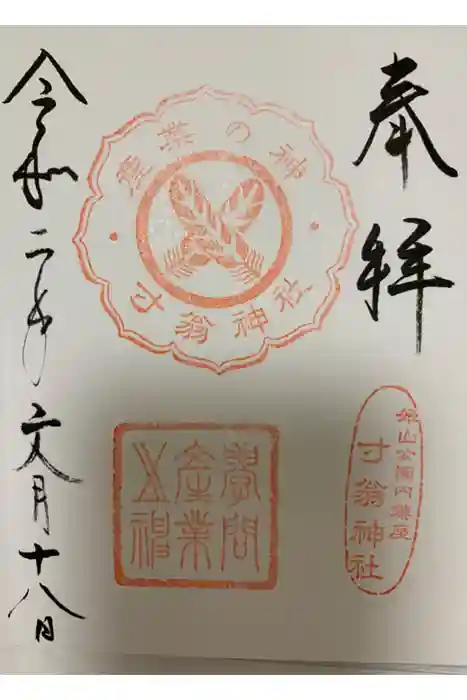 奉拝
産業の神
寸翁神社
學問
産業
之神
姫山公園内鎮座
寸翁神社
令和二年文月十八日